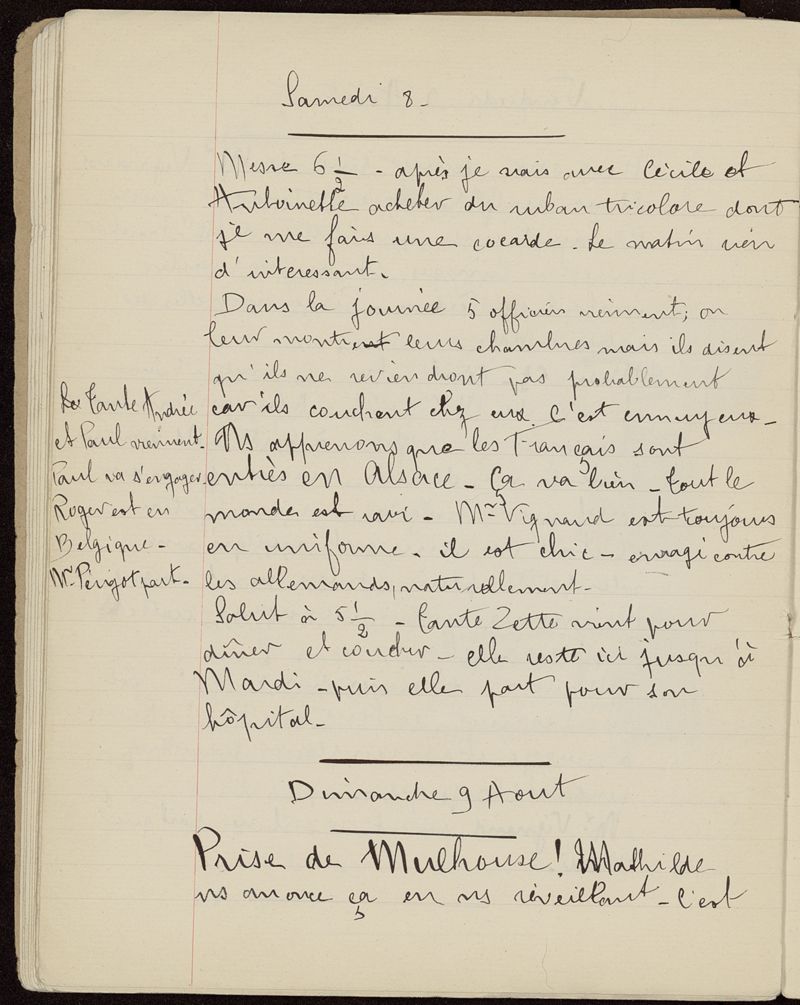 Samedi 8 -
Messe 6 1/2 - après je vais avec Cécile et
Antoinette acheter du ruban tricolore dont
je me fais une cocarde. Le matin rien
d'interessant.
Dans la journée 5 officiers viennent; on
leur montre leurs chambres mais ils disent
qu'ils ne reviendront pas probablement
car ils couchent chez eux. C'est ennuyeux -
Ns apprenons que les Français sont
entrés en Alsace - Ça va bien - tout le
monde est ravi - Mr Vignaud est toujours
en uniforme. il est chic - enragé contre
les allemands, naturellement -
Salut à 5 1/2 - Tante Zette vient pour
dîner et coucher - elle reste ici jusqu'à
Mardi - puis elle part pour son
hôpital -
Tante Andrée
et Paul viennent.
Paul va s'engager.
Roger est en
Belgique -
Mr Périgot part -
Dimanche 9 Aout
Prise de Mulhouse! Mathilde
ns anonce ça en ns réveillant - C'est